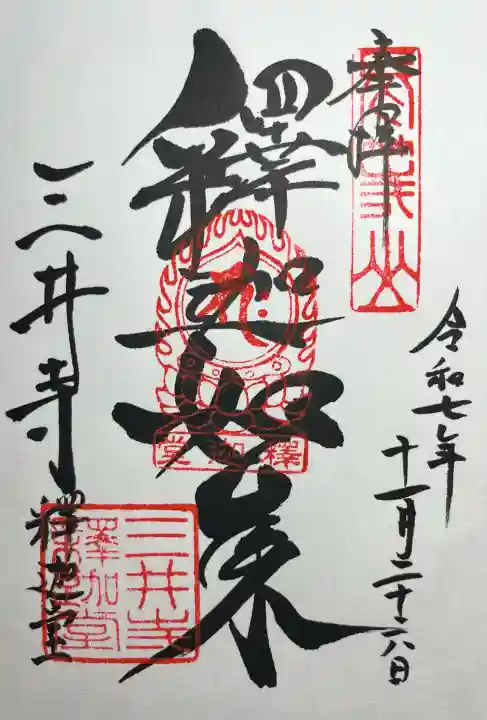 奉拝
令和七年
十一月二十六日
釋迦如来
釋迦堂
三井寺
釋迦堂
三井寺
釋迦堂